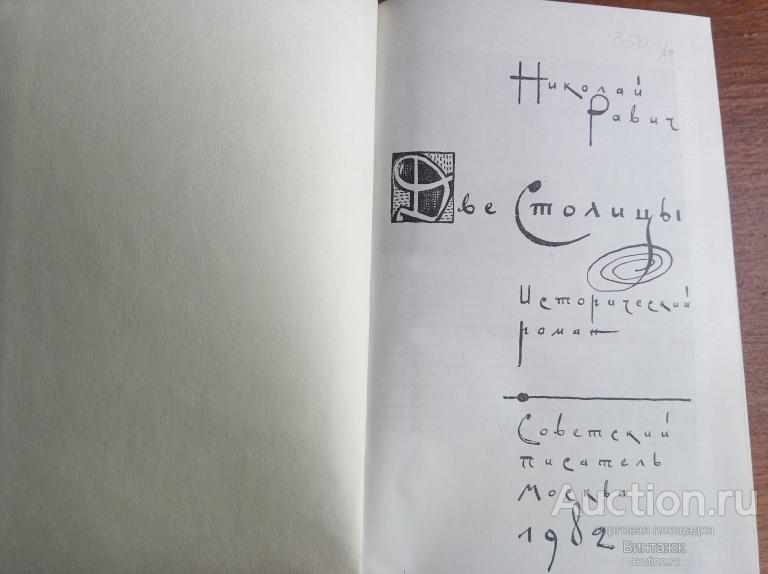 Николай
Равич
Две Столицы
Исторический
роман
Советский
писатель
Москва
1982
Auction.ru
торговая площадка
Винтажюк
auction.ru